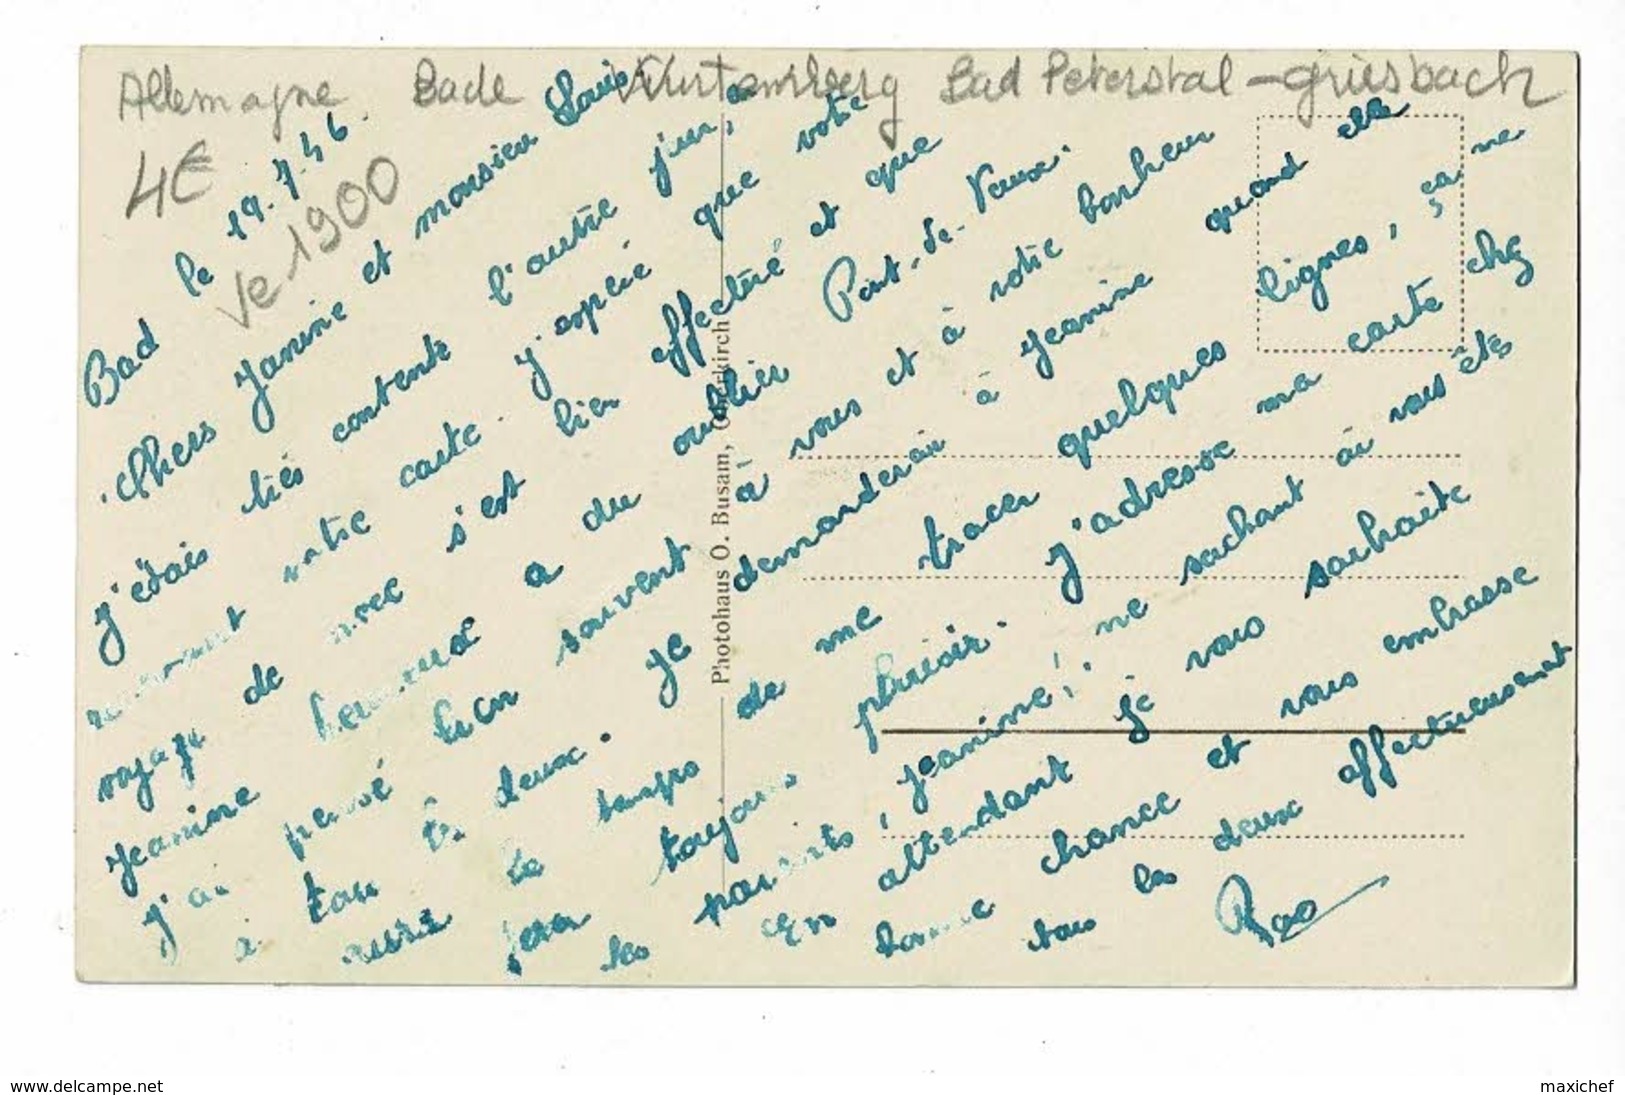 Allemagne Bade Wurtemberg Bad Peterstal - Griesbach
4€
Ve 1900
Bad le 19.7.46.
Chers Janine et monsieur Louis
j'étais très contente l'autre jour, a
recevant votre carte. j'espère que votre
voyage de noce s'est bien effectué et que
Jeanine heureux a du oublier Pont-de-Vaux.
j'ai pensé bien souvent à vous et à votre bonheur
a tous les deux. Je demanderai à Jeanine quand elle
aura le temps de me tracer quelques lignes, ça me
fera toujours plaisir. J'adresse ma carte chez
les parents, Jeanine, ne sachant où vous êtes
En attendant je vous souhaite
bonne chance et vous embrasse
tous les deux affectueusement
Photohaus O. Busam, Oberkirch
www.delcampe.net
maxichef